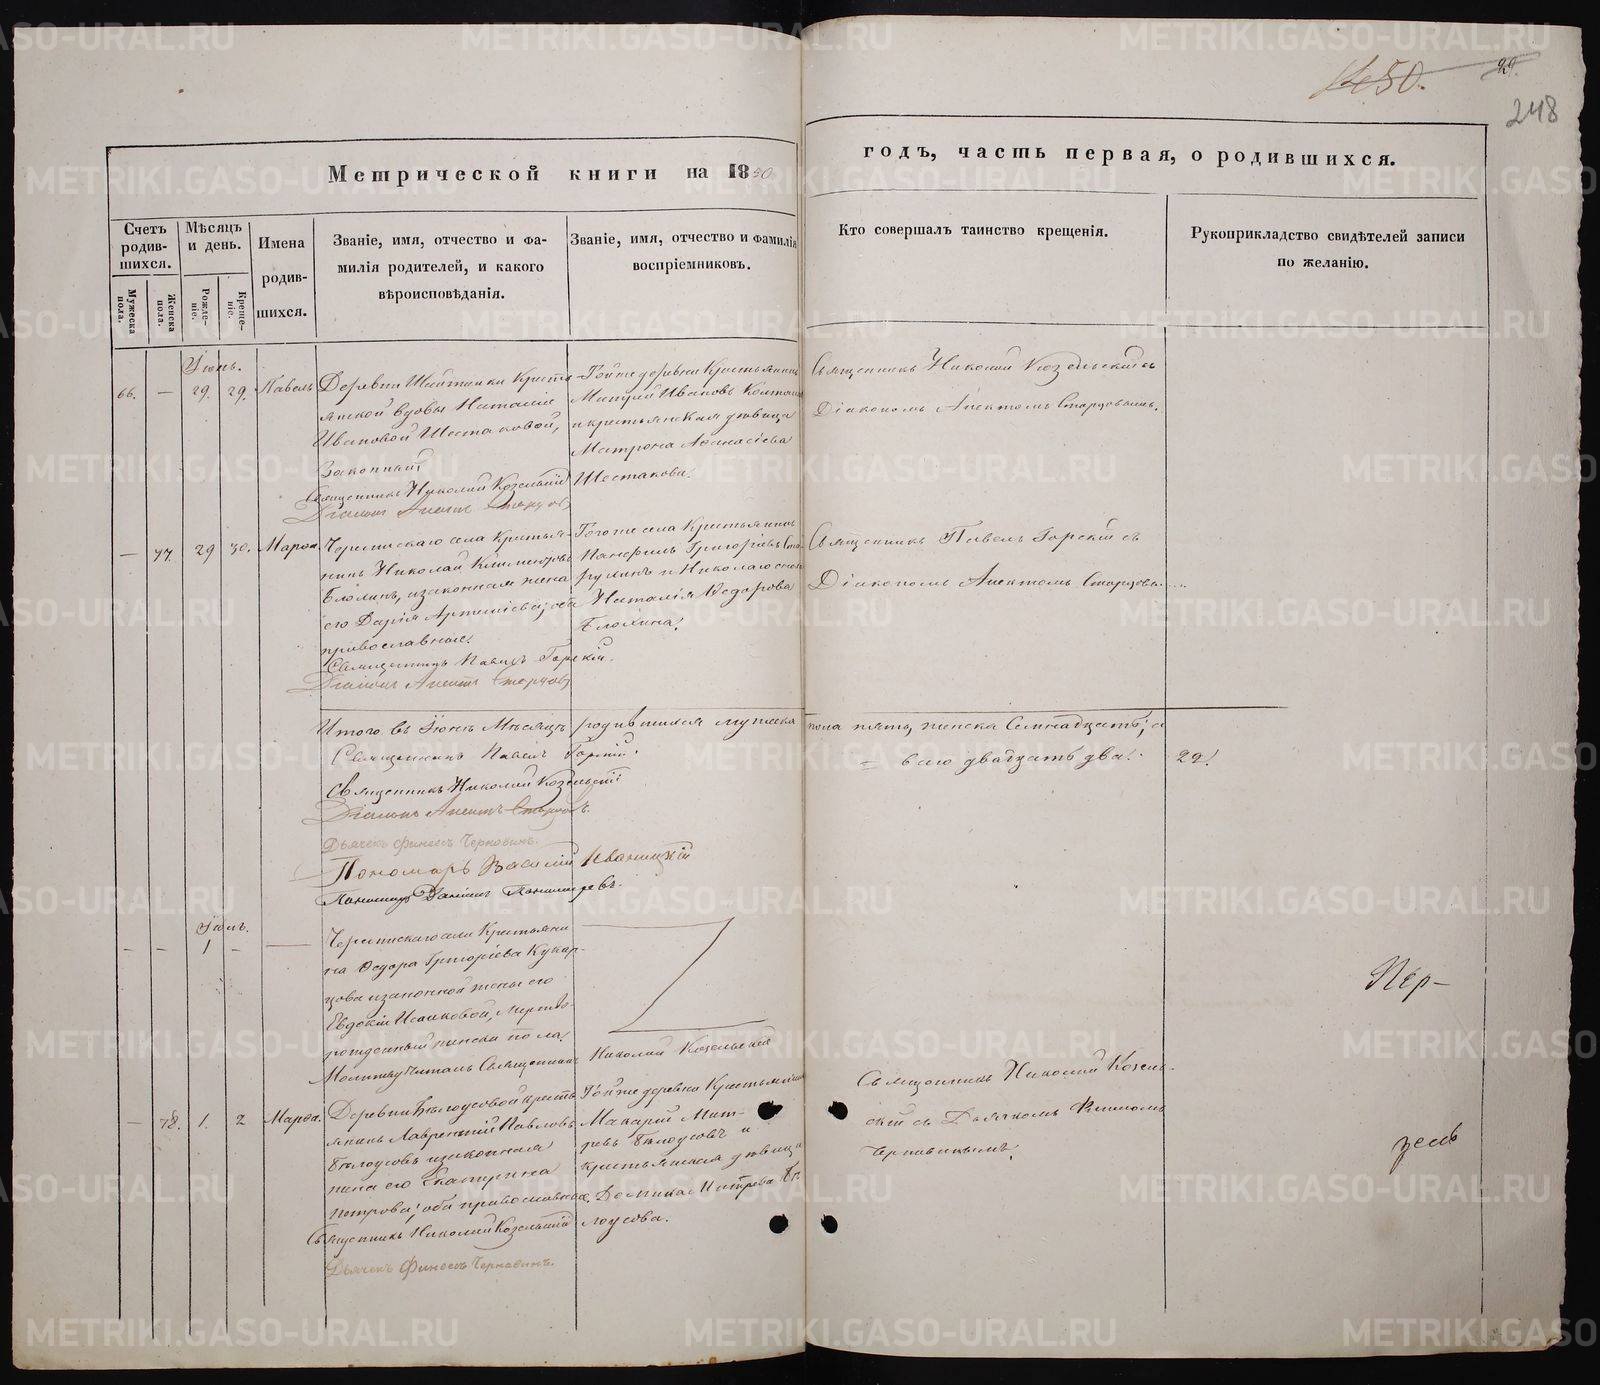 1450.
29.
248
Метрической книги на 1850
годъ, часть первая, о родившихся.
Счетъ родив-шихся.
Мѣсяцъ и день.
Имена родив-шихся.
Званіе, имя, отчество и фа-
милія родителей, и какого
вѣроисповѣданія.
Званіе, имя, отчество и фамилія
воспріемниковъ.
Кто совершалъ таинство крещенія.
Рукоприкладство свидѣтелей записи
по желанію.
Мужеска пола.
Женска пола.
Рожде-ніе.
Креще-ніе.
Іюнь.
66. — 29. 29. Павелъ
Деревни Шайтанки Кресть-
янской вдовы Наталіи
Ивановой Шестаковой,
Священникъ Николай Козельскій
Діаконъ Старцовъ
Тойже деревни Крестьянинъ
Ивановъ
и крестьянская дѣвица
Матрона Аѳанасіева
Шестакова.
Священникъ Николай Козельскій съ
Діакономъ Старцовымъ.
— 77. 29 30. Марѳа.
села Крестья-
нинъ Николай Климентовъ
Блохинъ, и законная жена
его Дарія Артеміева; оба
православные.
Священникъ Павелъ Горскій.
Діаконъ Старцовъ
Тогоже села Крестьянинъ
Панфилъ Григоріевъ
Наталія Ѳедорова
Блохина.
Священникъ Павелъ Горскій съ
Діакономъ Старцовымъ
Итого въ Іюнѣ Мѣсяцѣ родившихся мужеска
пола пять, женска Семнадцать; а
всего двадцать два.
22!
Священникъ Павелъ Горскій.
Священникъ Николай Козельскій
Діаконъ Старцовъ.
Дьячекъ Финеесъ Черновинъ.
Пономарь Василій Иваницкій
Пономарь Даніилъ
Іюль.
— — 1 — —
села Крестьяни-
на Ѳедора Григоріева Кукар-
цова и законной жены его
Евдокіи Исаковой, мертво-
рожденный женска пола.
Молитву читалъ Священникъ
Николай Козельскій
— 78. 1. 2 Марѳа.
Деревни Бѣлоусовой кресть-
янинъ Лаврентій Павловъ
Бѣлоусовъ и законная
жена его Екатерина
Петрова; оба православные.
Священникъ Николай Козельскій
Дьячекъ Финеесъ Черновинъ.
Тойже деревни Крестьянинъ
Макарій Мит-
ревъ Бѣлоусовъ и
крестьянская дѣвица
Домника Митрева Бѣ-
лоусова.
Священникъ Николай Козель-
скій съ Дьячкомъ Финеесомъ
Черновинымъ.
METRIKI.GASO-URAL.RU